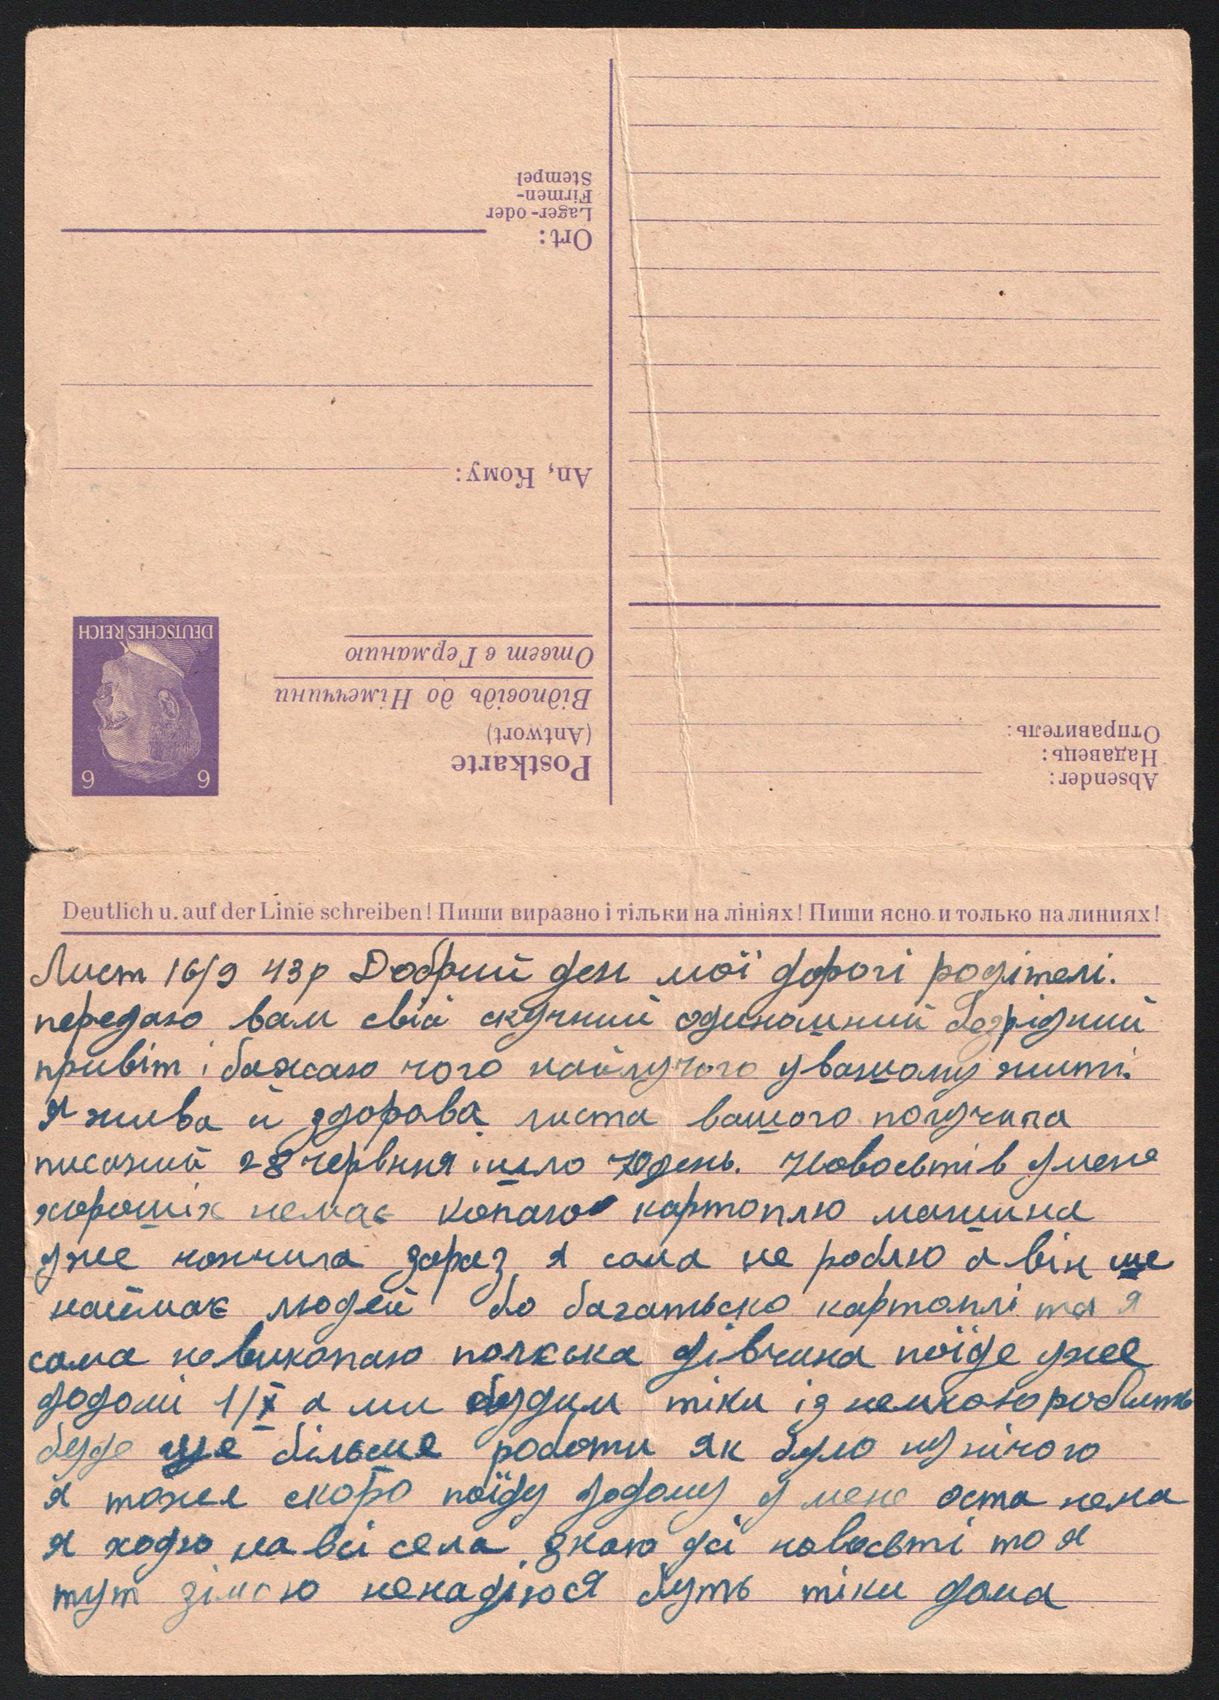 Absender:
Надавець:
Отправитель:
Postkarte
(Antwort)
Відповідь до Німеччини
Ответ в Германию
6 6
DEUTSCHES REICH
An, Кому:
Ort:
Lager- oder
Firmen-
Stempel
Deutlich u. auf der Linie schreiben! Пиши виразно і тільки на лініях! Пиши ясно и только на линиях!
Лист 16/9 43р Добрий ден мої дорогі родітелі.
передаю вам свій скучний одиношний
привіт і бажаю чого найлучого у вашому житі.
я жива й здорова листа вашого получила
писаний 28 червння ішло 70 день. Новостів у мене
хороших немає копаю картоплю машина
уже кончила зараз я сама не роблю а він ще
наймає людей бо багатьско картоплі та я
сама невикопаю полєька дівчина поїде уже
додомі 1/X а ми будим тіки із немкою робить
буде ще більше роботи як було ну нічого
я тоже скоро поїду додому у мене оста нема
я ходю на всі села знаю всі новості то я
тут зімою ненадіюся буть тіки дома